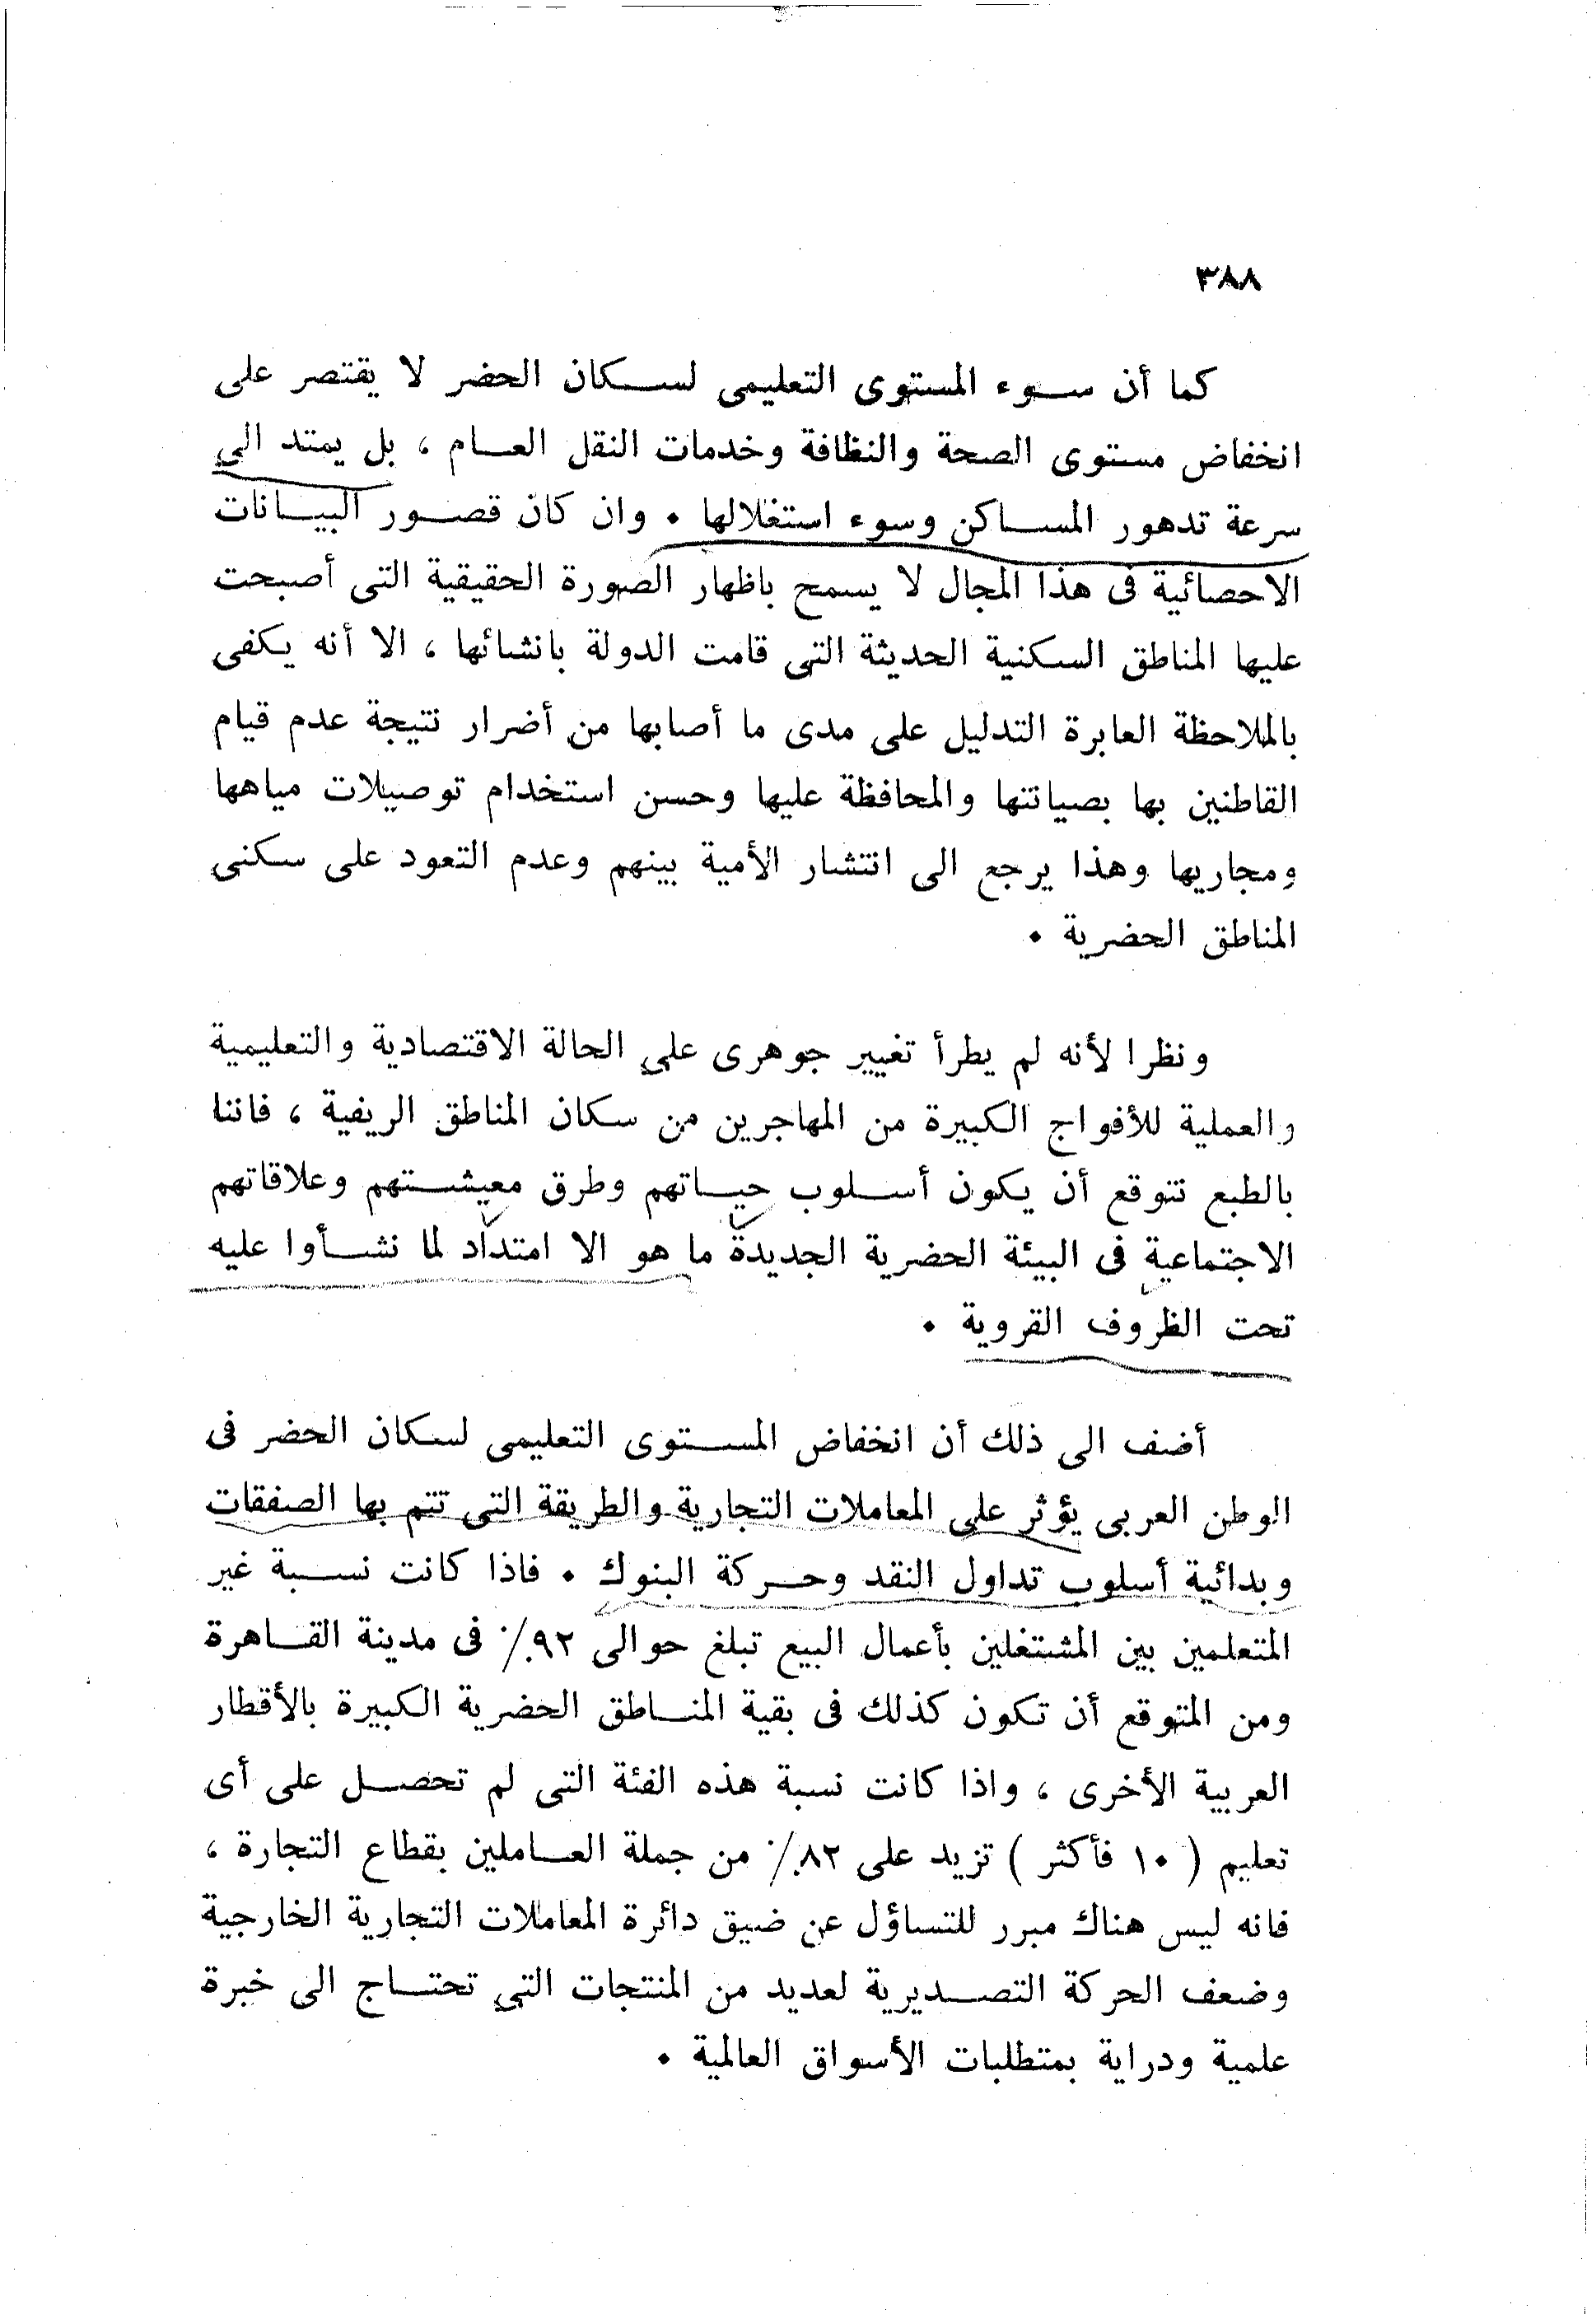 ٣٨٨
كما أن سوء المستوى التعليمى لسكان الحضر لا يقتصر على
انخفاض مستوى الصحة والنظافة وخدمات النقل العام ، بل يمتد الى
سرعة تدهور المساكن وسوء استغلالها . وان كان قصور البيانات
الاحصائية فى هذا المجال لا يسمح باظهار الصورة الحقيقية التى أصبحت
عليها المناطق السكنية الحديثة التى قامت الدولة بانشائها ، الا أنه يكفى
بالملاحظة العابرة التدليل على مدى ما أصابها من أضرار نتيجة عدم قيام
القاطنين بها بصيانتها والمحافظة عليها وحسن استخدام توصيلات مياهها
ومجاريها وهذا يرجع الى انتشار الأمية بينهم وعدم التعود على سكنى
المناطق الحضرية .
ونظرا لأنه لم يطرأ تغيير جوهرى على الحالة الاقتصادية والتعليمية
والعملية للأفواج الكبيرة من المهاجرين من سكان المناطق الريفية ، فاننا
بالطبع نتوقع أن يكون أسلوب حياتهم وطرق معيشتهم وعلاقاتهم
الاجتماعية فى البيئة الحضرية الجديدة ما هو الا امتداد لما نشأوا عليه
تحت الظروف القروية .
أضف الى ذلك أن انخفاض المستوى التعليمى لسكان الحضر فى
الوطن العربى يؤثر على المعاملات التجارية والطريقة التى تتم بها الصفقات
وبدائية أسلوب تداول النقد وحركة البنوك . فاذا كانت نسبة غير
المتعلمين بين المشتغلين بأعمال البيع تبلغ حوالى ٩٢٪ فى مدينة القاهرة
ومن المتوقع أن تكون كذلك فى بقية المناطق الحضرية الكبيرة بالأقطار
العربية الأخرى ، واذا كانت نسبة هذه الفئة التى لم تحصل على أى
تعليم ( ١٠ فأكثر ) تزيد على ٨٢٪ من جملة العاملين بقطاع التجارة ،
فانه ليس هناك مبرر للتساؤل عن ضيق دائرة المعاملات التجارية الخارجية
وضعف الحركة التصديرية لعديد من المنتجات التى تحتاج الى خبرة
علمية ودراية بمتطلبات الأسواق العالمية .